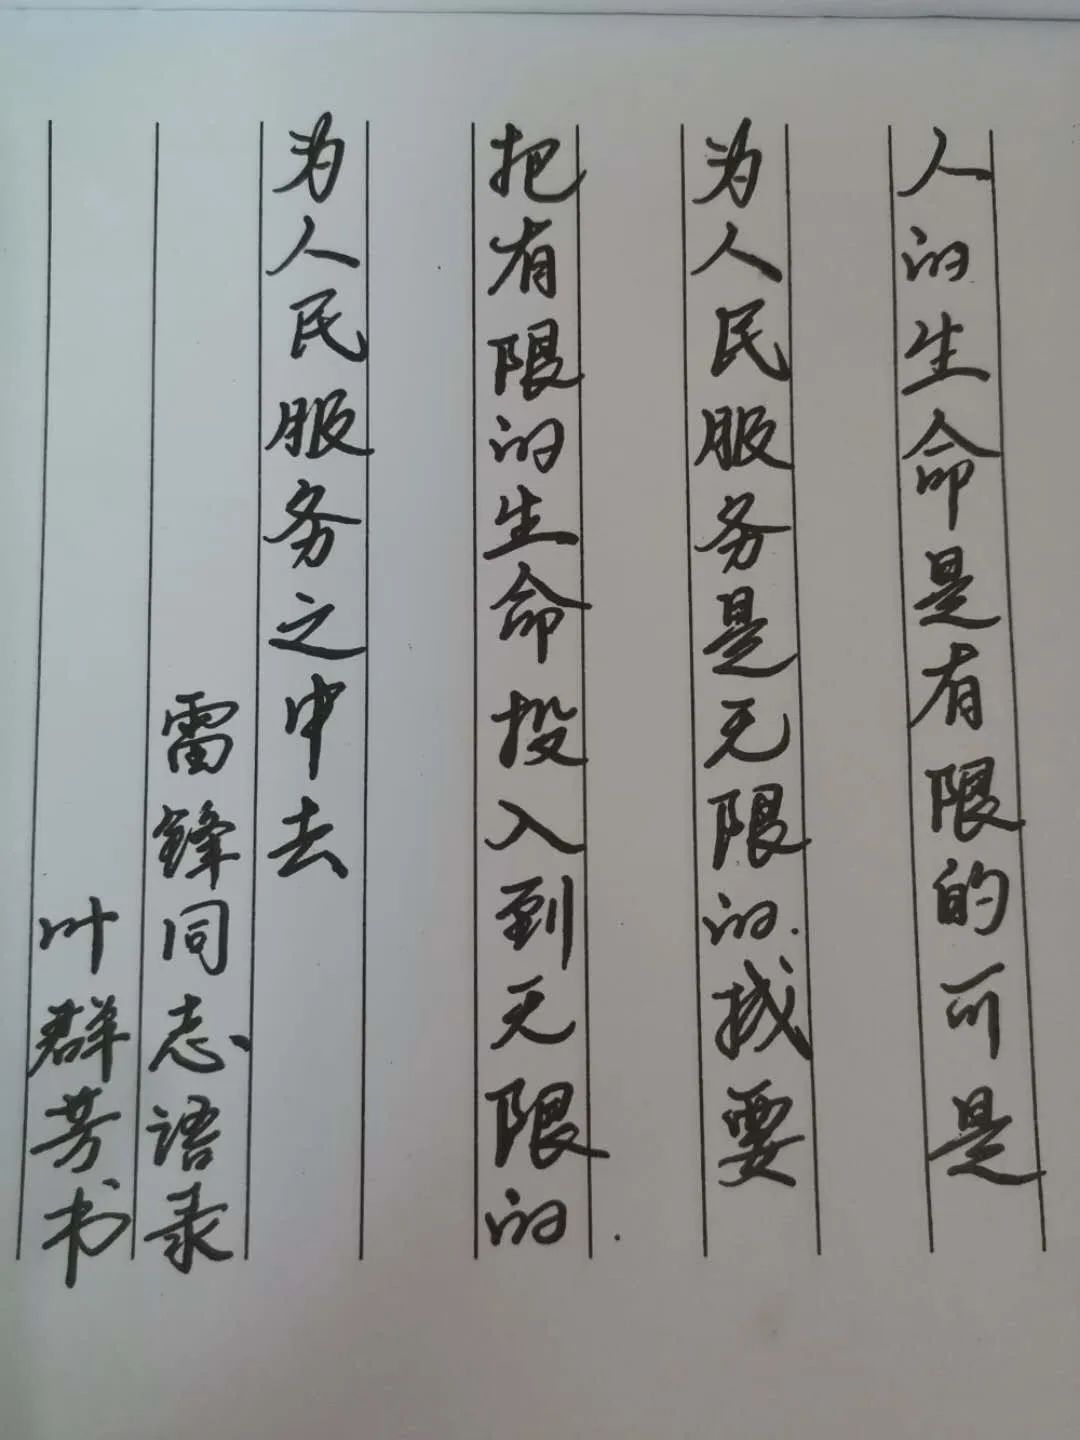 人的生命是有限的可是
为人民服务是无限的.我要
把有限的生命投入到无限的
为人民服务之中去
雷锋同志语录
叶群芳书